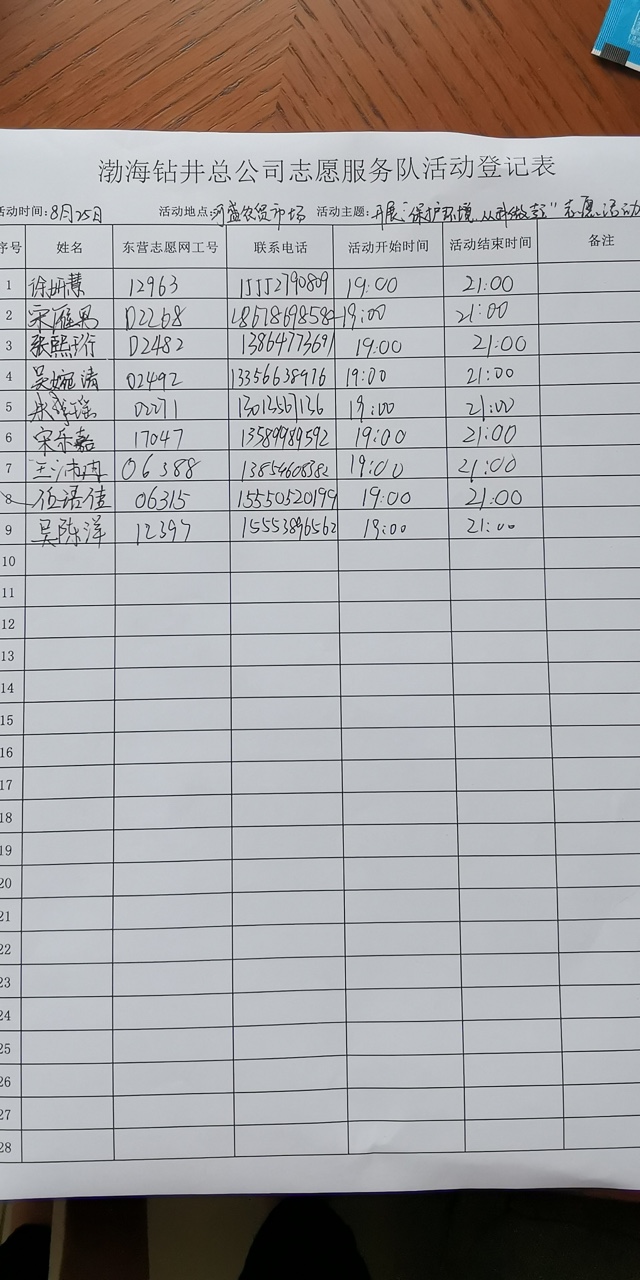 渤海钻井总公司志愿服务队活动登记表
活动时间:8月25日 活动地点:河盛农贸市场 活动主题:开展"保护环境,从我做起"志愿活动
序号 姓名 东营志愿网工号 联系电话 活动开始时间 活动结束时间 备注
1 徐妍慧 12963 15552790809 19:00 21:00
2 宋雁男 D2268 18571869858 19:00 21:00
3 张熙珩 D2482 13864773691 19:00 21:00
4 吴婉清 02492 13356638976 19:00 21:00
5 19:00 21:00
6 宋乐嘉 17047 13589989592 19:00 21:00
7 06388 13854608382 19:00 21:00
8 伍语佳 06315 15550520199 19:00 21:00
9 吴陈洋 12397 15553896562 19:00 21:00
10
11
12
13
14
15
16
17
18
19
20
21
22
23
24
25
26
27
28